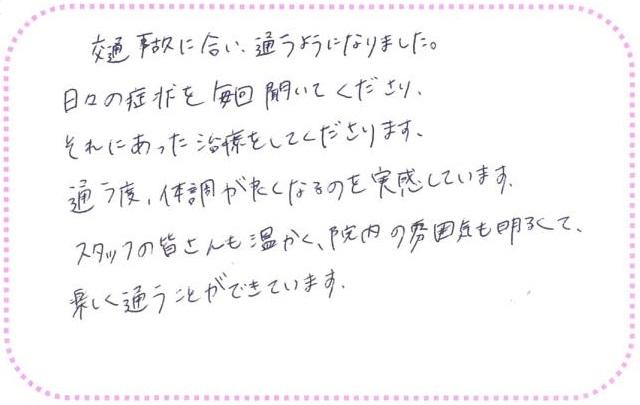 交通事故に合い、通うようになりました。
日々の症状を毎回聞いてくださり、
それにあった治療をしてくださります。
通う度、体調が良くなるのを実感しています。
スタッフの皆さんも温かく、院内の雰囲気も明るくて、
楽しく通うことができています。